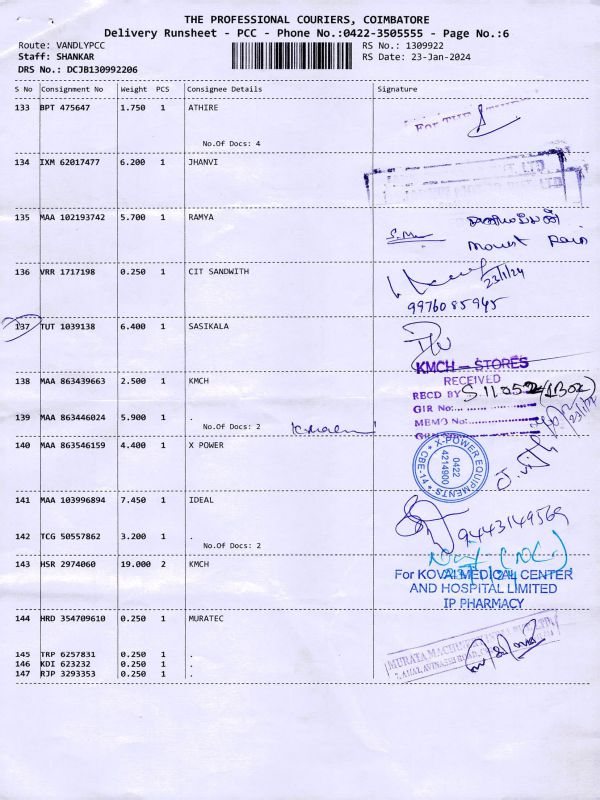 THE PROFESSIONAL COURIERS, COIMBATORE
Delivery Runsheet - PCC - Phone No.:0422-3505555 - Page No.:6
Route: VANDLYPCC RS No.: 1309922
Staff: SHANKAR RS Date: 23-Jan-2024
DRS No.: DCJB130992206
S No Consignment No Weight PCS Consignee Details Signature
133 BPT 475647 1.750 1 ATHIRE
For THE
No.Of Docs: 4
134 IXM 62017477 6.200 1 JHANVI
LTD
135 MAA 102193742 5.700 1 RAMYA
Mount
136 VRR 1717198 0.250 1 CIT SANDWITH
23/1/24
9976085945
137 TUT 1039138 6.400 1 SASIKALA
KMCH - STORES
RECEIVED
138 MAA 863439663 2.500 1 KMCH
RECD BY (1Box)
GIR No:
139 MAA 863446024 5.900 1 .
MEMO No:
No.Of Docs: 2
140 MAA 863546159 4.400 1 X POWER
X-POWER EQUIPMENTS
0422
4214900
CBE-14
141 MAA 103996894 7.450 1 IDEAL
9443149569
142 TCG 50557862 3.200 1 .
No.Of Docs: 2
143 HSR 2974060 19.000 2 KMCH
For KOVAI MEDICAL CENTER
AND HOSPITAL LIMITED
IP PHARMACY
144 HRD 354709610 0.250 1 MURATEC
MURATA MACHINERY
145 TRP 6257831 0.250 1 .
146 KDI 623232 0.250 1 .
147 RJP 3293353 0.250 1 .